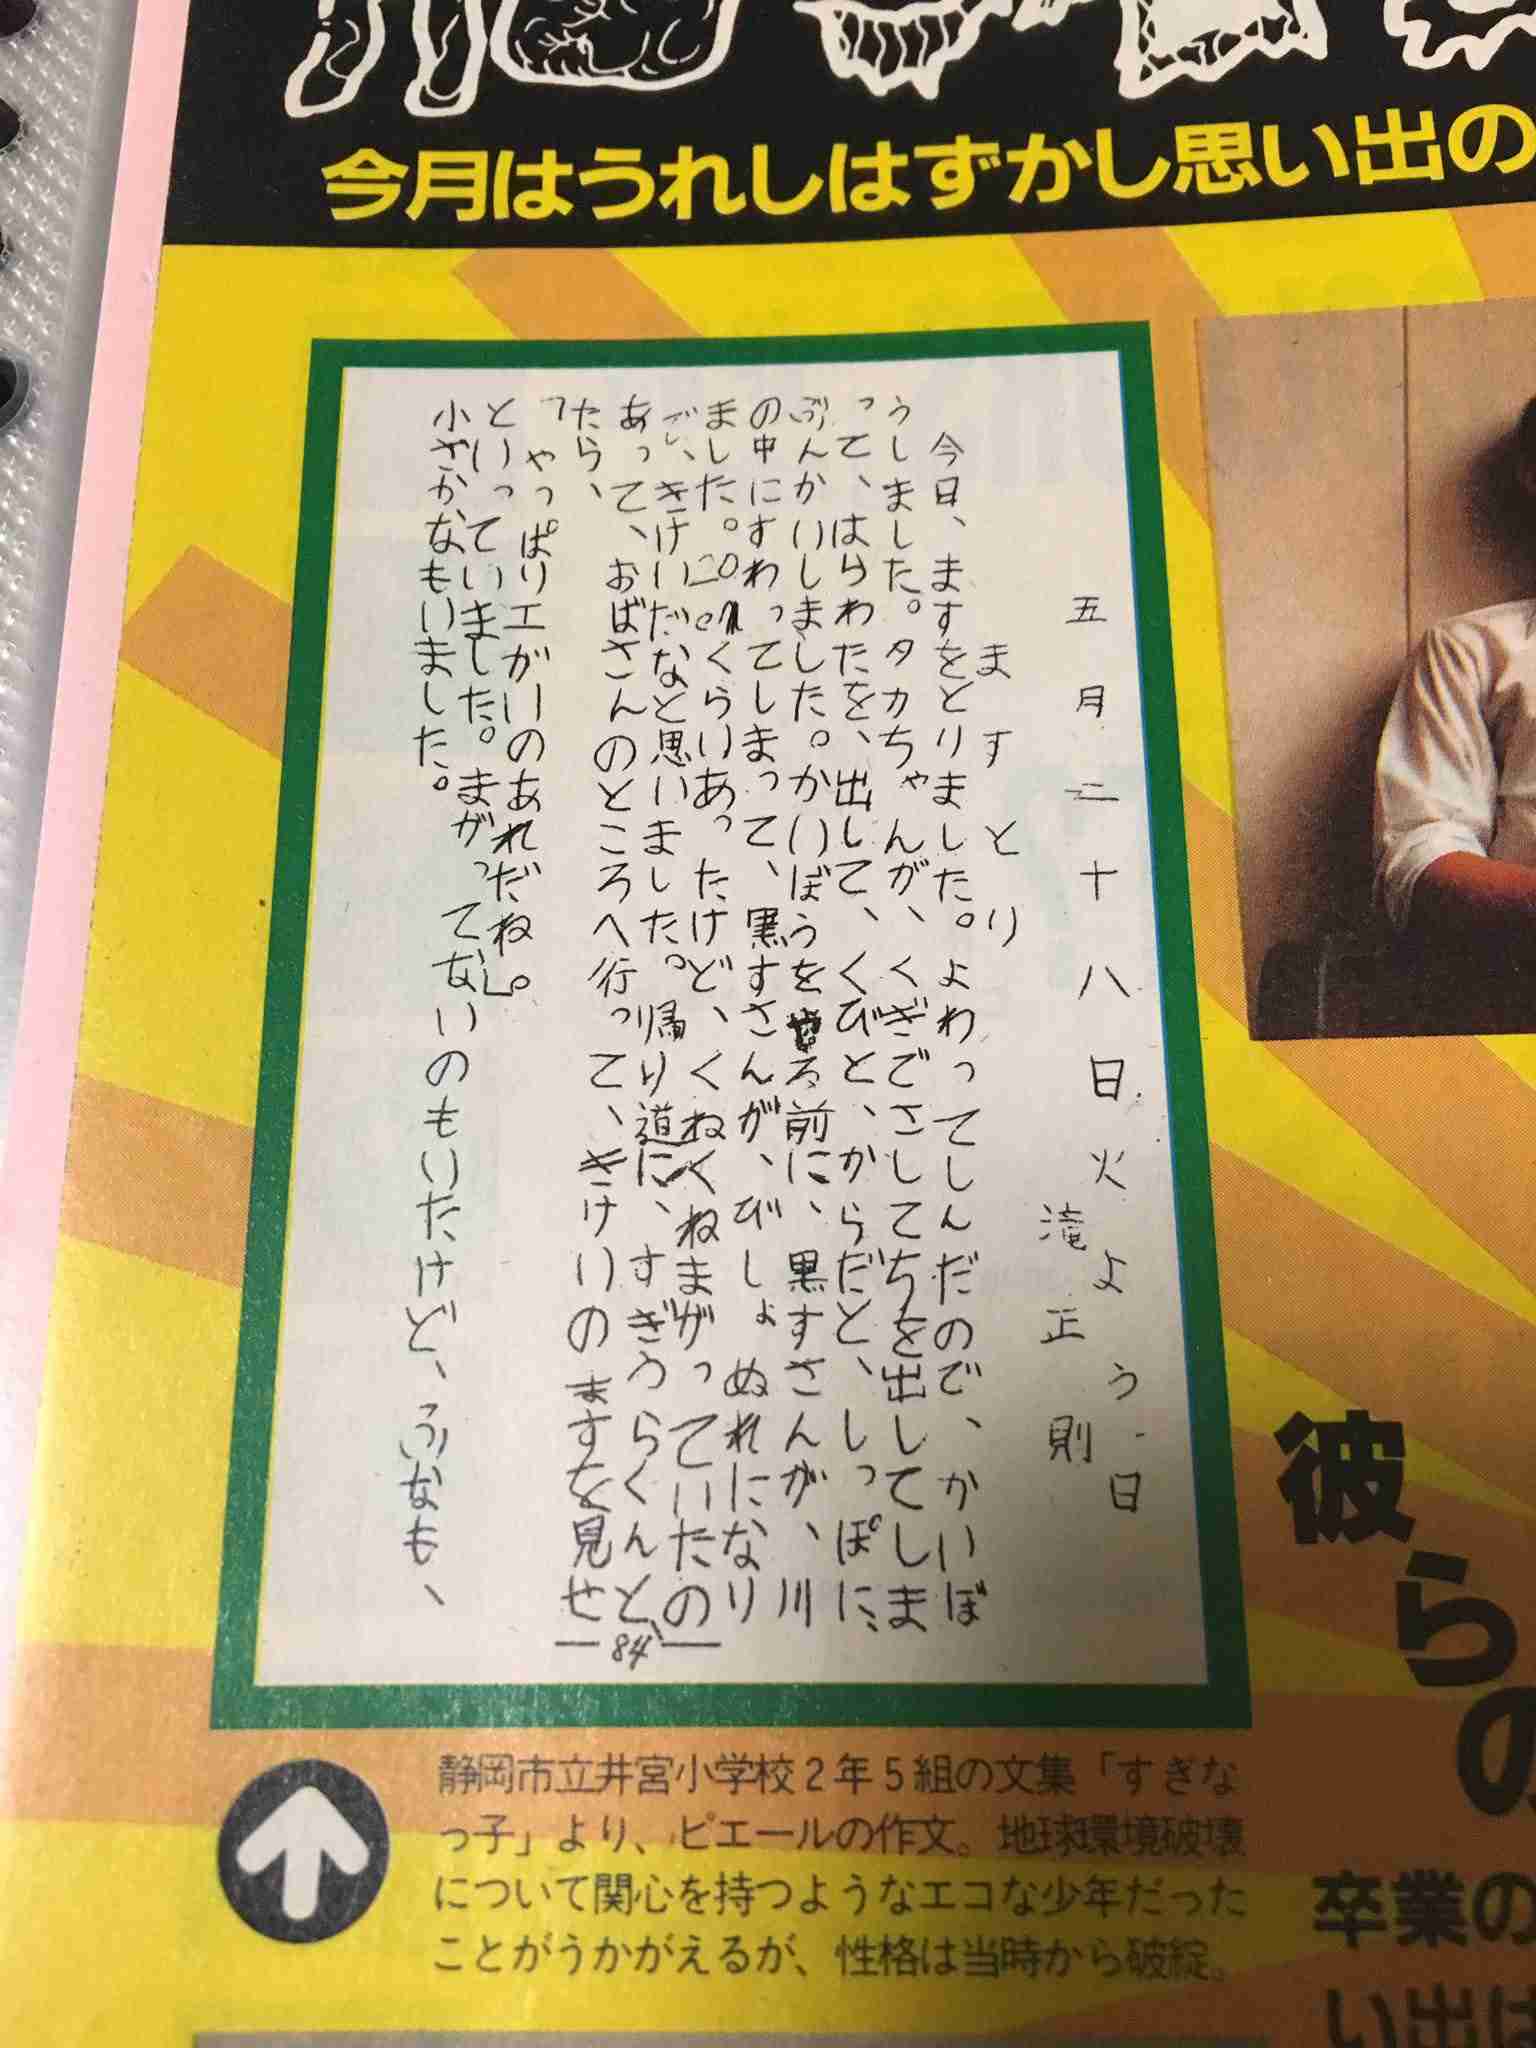 今月はうれしはずかし思い出の
五月二十八日火よう日
滝正則
ますとり
今日、ますをとりました。よわってしんだので、かいぼ
うしました。タカちゃんが、くぎでさしてちを出してしま
って、はらわたを、出して、くびと、からだと、しっぽに、
ぶんかいしました。かいぼうをやろ前に、黒すさんが、川
の中にすわってしまって、黒すさんが、びしょぬれになり
ました。20cmくらいあったけど、くねくねまがっていたの
で、きけいだなと思いました。帰り道に、すぎうらくんと、
あって、おばさんのところへ行って、きけいのますを見せ
たら、
「やっぱりエがいのあれだね」。
といっていました。まがってないのもいたけど、ふなも、
小ざかなもいました。
84
静岡市立井宮小学校2年5組の文集「すぎな
っ子」より、ピエールの作文。地球環境破壊
について関心を持つようなエコな少年だった
ことがうかがえるが、性格は当時から破綻。
彼らの
卒業の
い出は